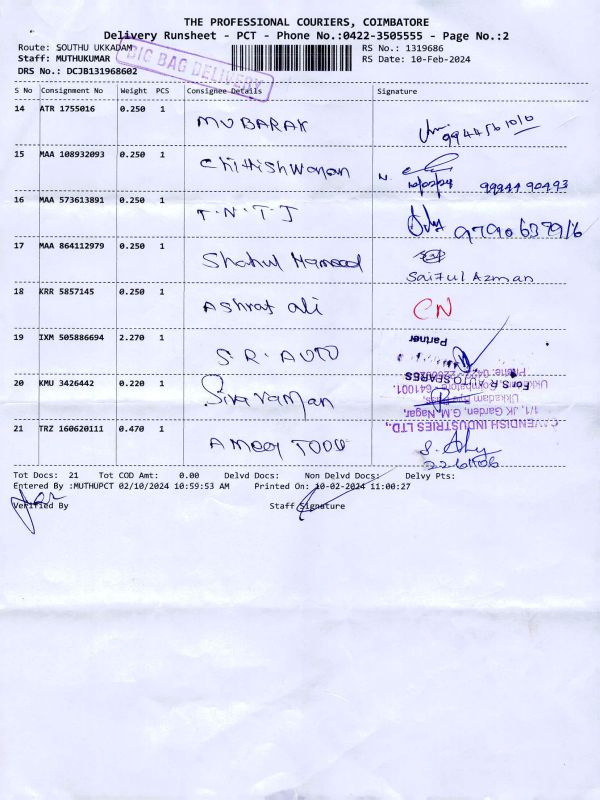 THE PROFESSIONAL COURIERS, COIMBATORE
Delivery Runsheet - PCT - Phone No.:0422-3505555 - Page No.:2
Route: SOUTHU UKKADAM
RS No.: 1319686
Staff: MUTHUKUMAR
RS Date: 10-Feb-2024
DRS No.: DCJB131968602
BIG BAG DELIVERY
S No Consignment No Weight PCS Consignee Details Signature
14 ATR 1755016 0.250 1 MUBARAK
15 MAA 108932093 0.250 1 99944 90493
16 MAA 573613891 0.250 1 T.N.T.J
17 MAA 864112979 0.250 1 Shahul Hameed Saiful Azman
18 KRR 5857145 0.250 1 Ashraf ali CN
19 IXM 505886694 2.270 1 S.R. AUTO
Partner
For S.R. AUTO SPARES
20 KMU 3426442 0.220 1 Sivaraman
CAVENDISH INDUSTRIES LTD.,
1/1, JK Garden, G.M. Nagar,
21 TRZ 160620111 0.470 1
Tot Docs: 21 Tot COD Amt: 0.00 Delvd Docs: Non Delvd Docs: Delvy Pts:
Entered By :MUTHUPCT 02/10/2024 10:59:53 AM Printed On: 10-02-2024 11:00:27
Verified By Staff Signature